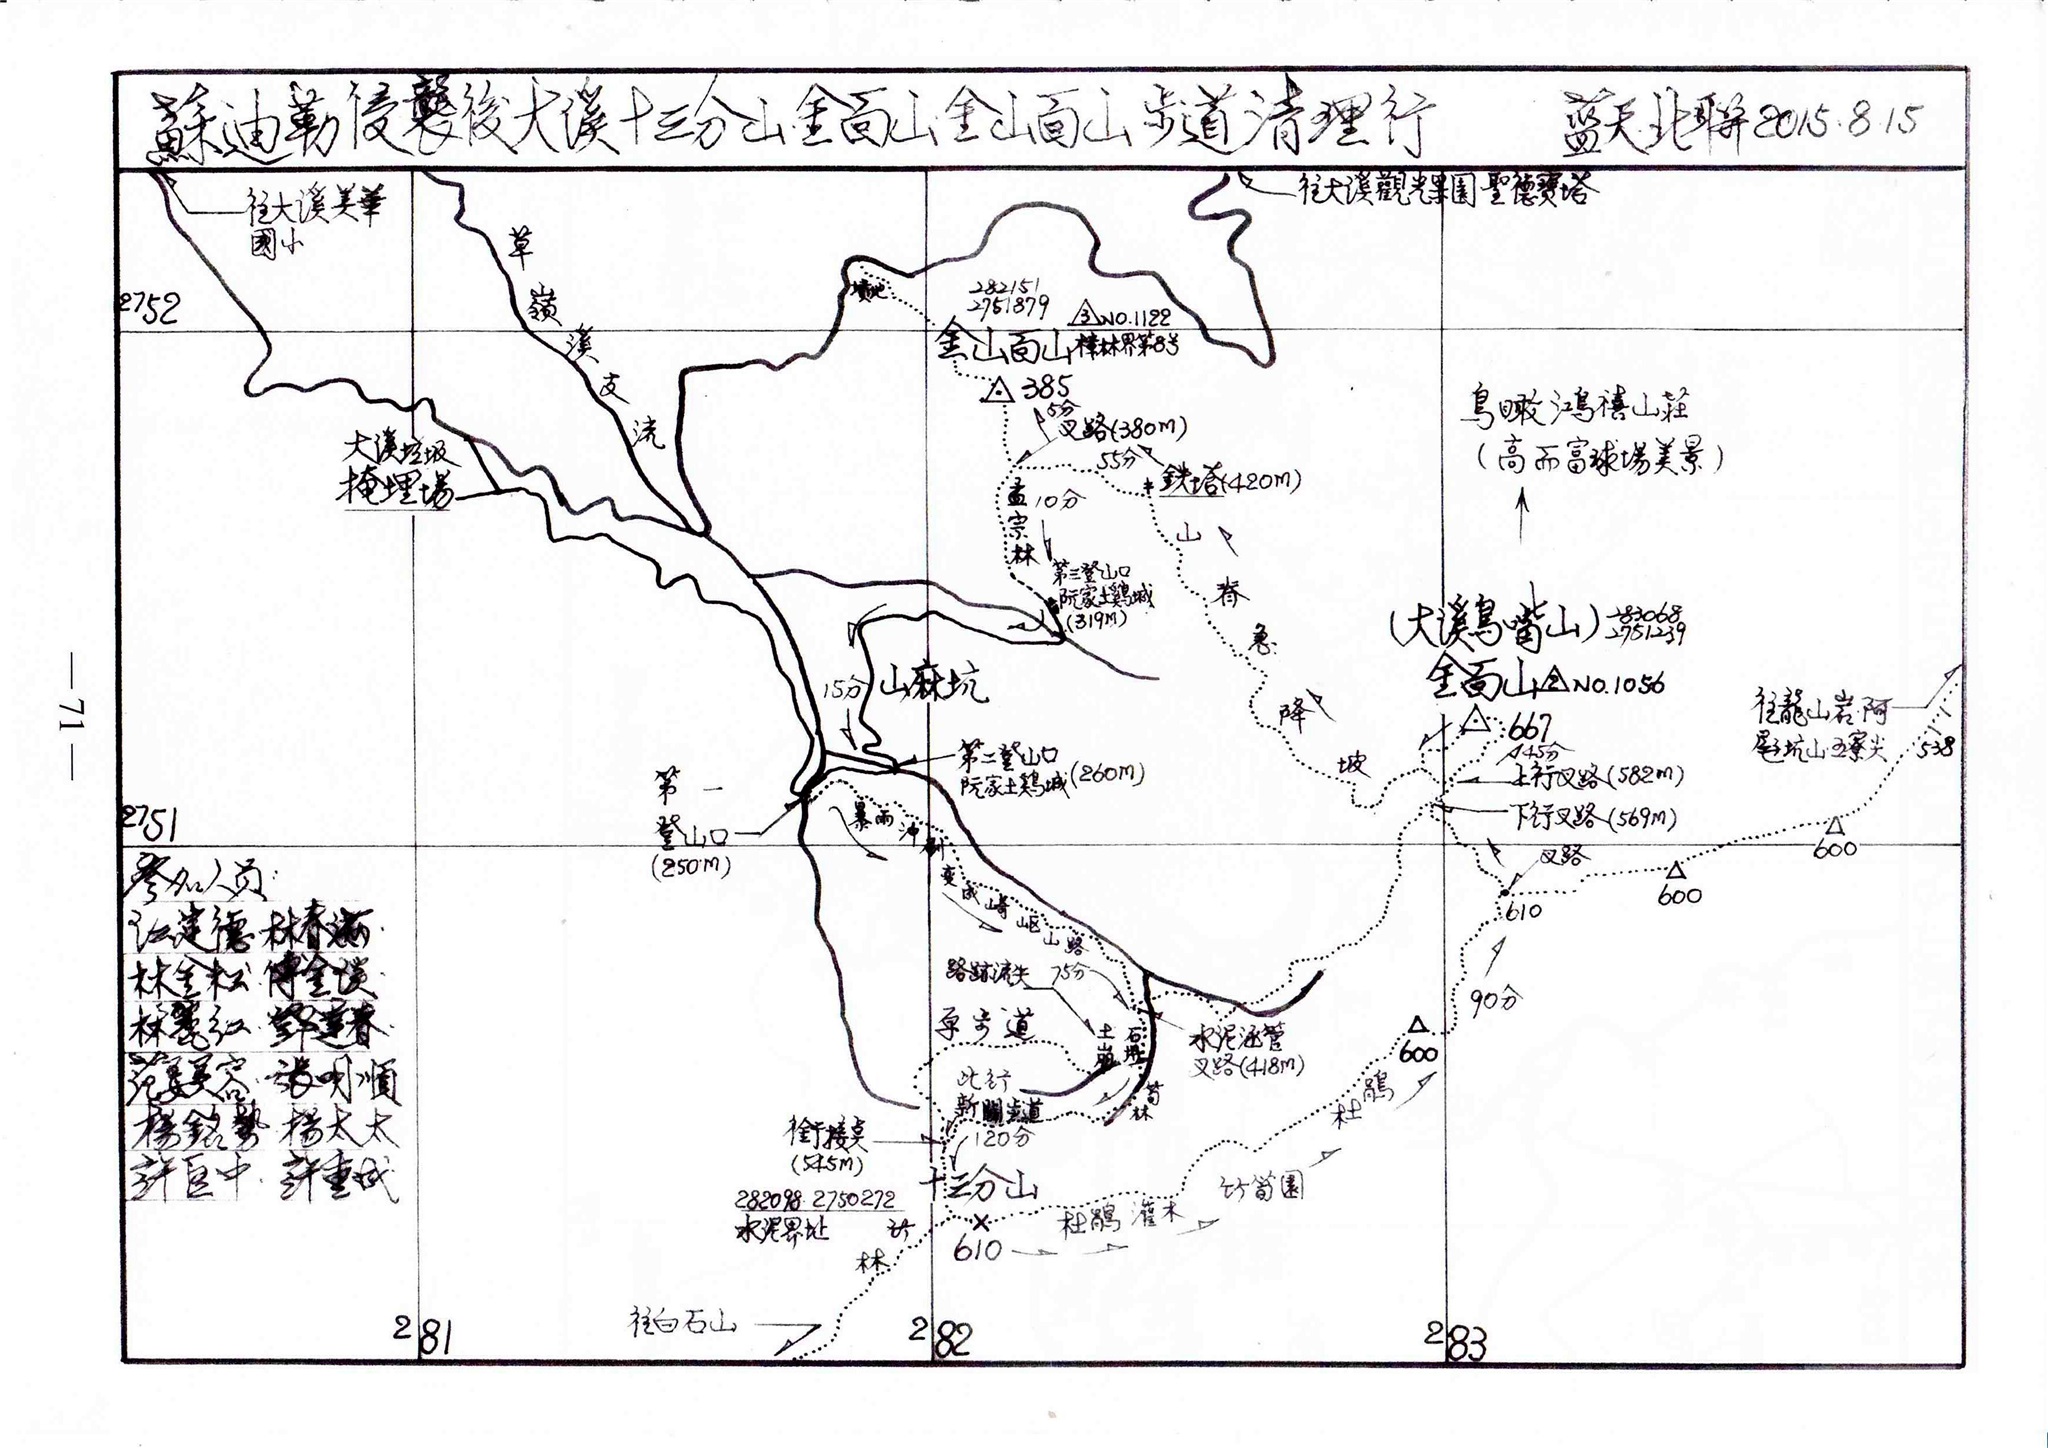 蘇迪勒侵襲後大溪十三分山.金面山.金山面山步道清理行 藍天.北聯2015.8.15
往大溪美華
國小
草嶺溪支流
往大溪觀光果園.聖德寶塔
2752
墳地
282151
2751879
金山面山
3 NO.1122
樟林界第8号
385
5分
叉路(380m)
55分
鉄塔(420m)
大溪垃圾
掩埋場
鳥瞰鴻禧山莊
(高而富球場美景)
孟宗林
10分
第三登山口
阮家土鷄城
(319m)
山脊急降坡
(大溪鳥嘴山)
283068
2751239
金面山 2 NO.1056
667
45分
上行叉路(582m)
下行叉路(569m)
往龍山岩.阿
屘坑山.五寮尖
538
山麻坑
15分
第二登山口
阮家土鷄城
(260m)
第一
登山口
(250m)
2751
暴雨沖刷變成崎岖山路
叉路
610
600
600
參加人員:
林春滿
林金松
張明順
楊銘勢 楊太太
許巨中. 許重成
路跡流失
75分
原步道
土崩
石堆
水泥涵管
叉路(418m)
90分
600
杜鵑
此行
新闢步道
120分
筍林
銜接點
(545m)
十三分山
282098.2750272
水泥界址
竹林
610
杜鵑灌木
竹筍園
往白石山
281
282
283
—71—